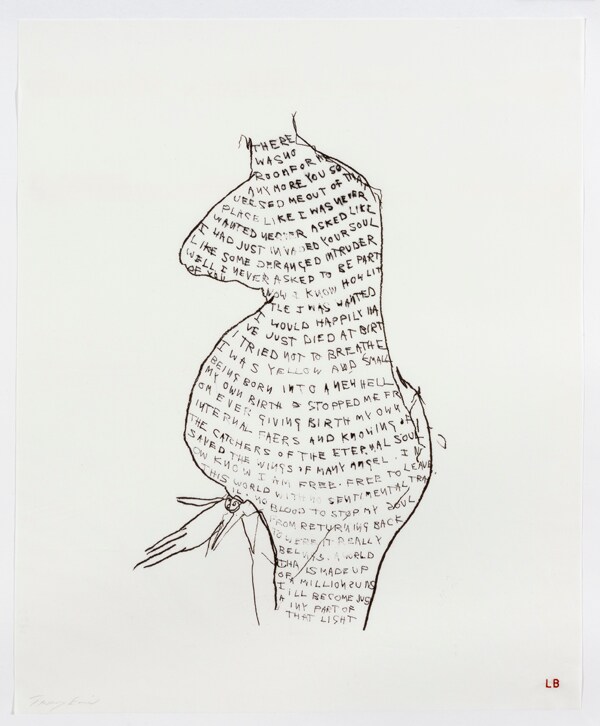 THERE
WAS NO
ROOM FOR ME
ANY MORE YOU SO
ME OUT OF THAT
PLACE LIKE I WAS NEVER
WANTED NEVER ASKED LIKE
I HAD JUST INVADED YOUR SOUL
LIKE SOME DERANGED INTRUDER
WELL I NEVER ASKED TO BE PART
OF YOU NOW I KNOW HOW LIT
TLE I WAS WANTED
I WOULD HAPPILY HA
VE JUST DIED AT BIRT
I TRIED NOT TO BREATHE
I WAS YELLOW AND SMALL
BEING BORN INTO A NEW HELL
MY OWN BIRTH STOPPED ME FR
OM EVER GIVING BIRTH MY OWN
INTERNAL FAERS AND KNOWING OF
THE CATCHERS OF THE ETERNAL SOUL
SAVED THE WINGS OF MANY ANGEL. I N
OW KNOW I AM FREE. FREE TO LEAVE
THIS WORLD WITH NO SENTIMENTAL TRA
NO BLOOD TO STOP MY SOUL
FROM RETURNING BACK
TO WERE IT REALLY
BELONGS. A WORLD
THA IS MADE UP
OF A MILLION SUNS
I ILL BECOME JUS
A INY PART OF
THAT LIGHT
LB